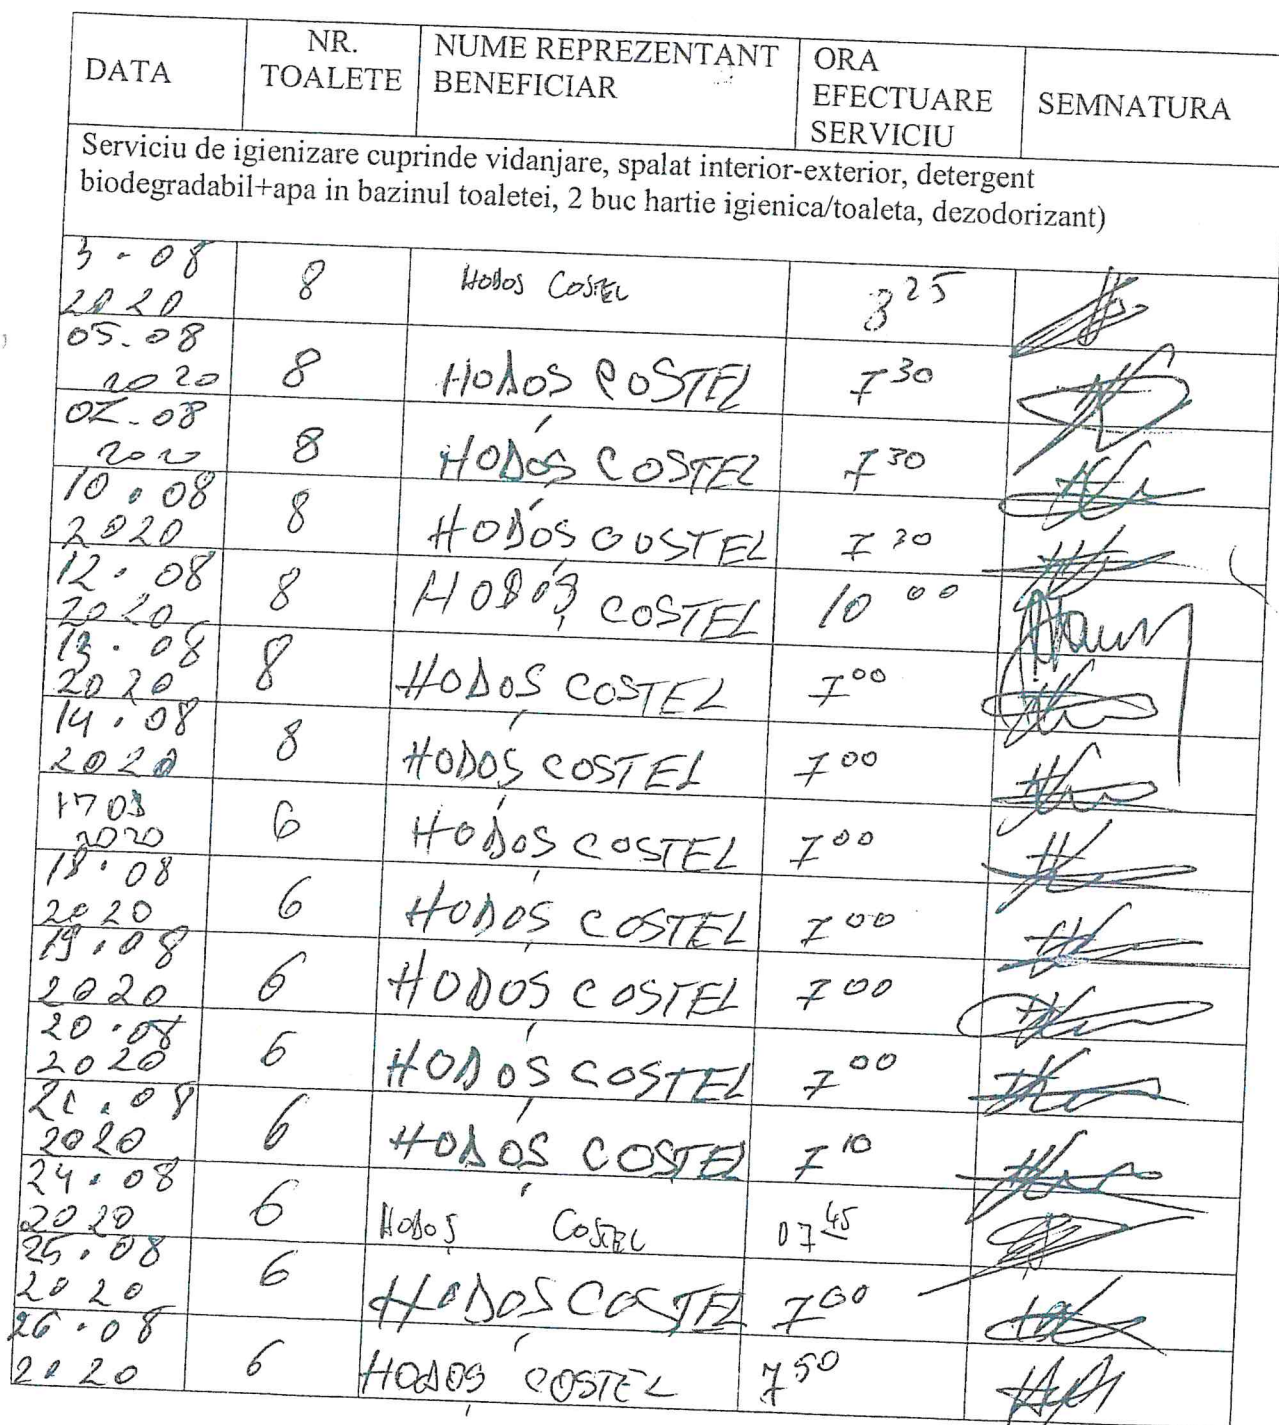 DATA
NR.
TOALETE
NUME REPREZENTANT
BENEFICIAR
ORA
EFECTUARE
SERVICIU
SEMNATURA
Serviciu de igienizare cuprinde vidanjare, spalat interior-exterior, detergent
biodegradabil+apa in bazinul toaletei, 2 buc hartie igienica/toaleta, dezodorizant)
3-08
2020
8
HODOS COSTEL
8 25
05-08
2020
8
HODOS COSTEL
7 30
07-08
2020
8
HODOȘ COSTEL
7 30
10.08
2020
8
HODOȘ COSTEL
7 30
12.08
2020
8
HODOȘ COSTEL
10 00
13.08
2020
8
HODOȘ COSTEL
7 00
14.08
2020
8
HODOȘ COSTEL
7 00
17 08
2020
6
HODOȘ COSTEL
7 00
18.08
2020
6
HODOȘ COSTEL
7 00
19.08
2020
6
HODOȘ COSTEL
7 00
20.08
2020
6
HODOȘ COSTEL
7 00
21.08
2020
6
HODOȘ COSTEL
7 10
24.08
2020
6
HODOȘ COSTEL
07 45
25.08
2020
6
HODOȘ COSTEL
7 00
26.08
2020
6
HODOȘ COSTEL
7 50